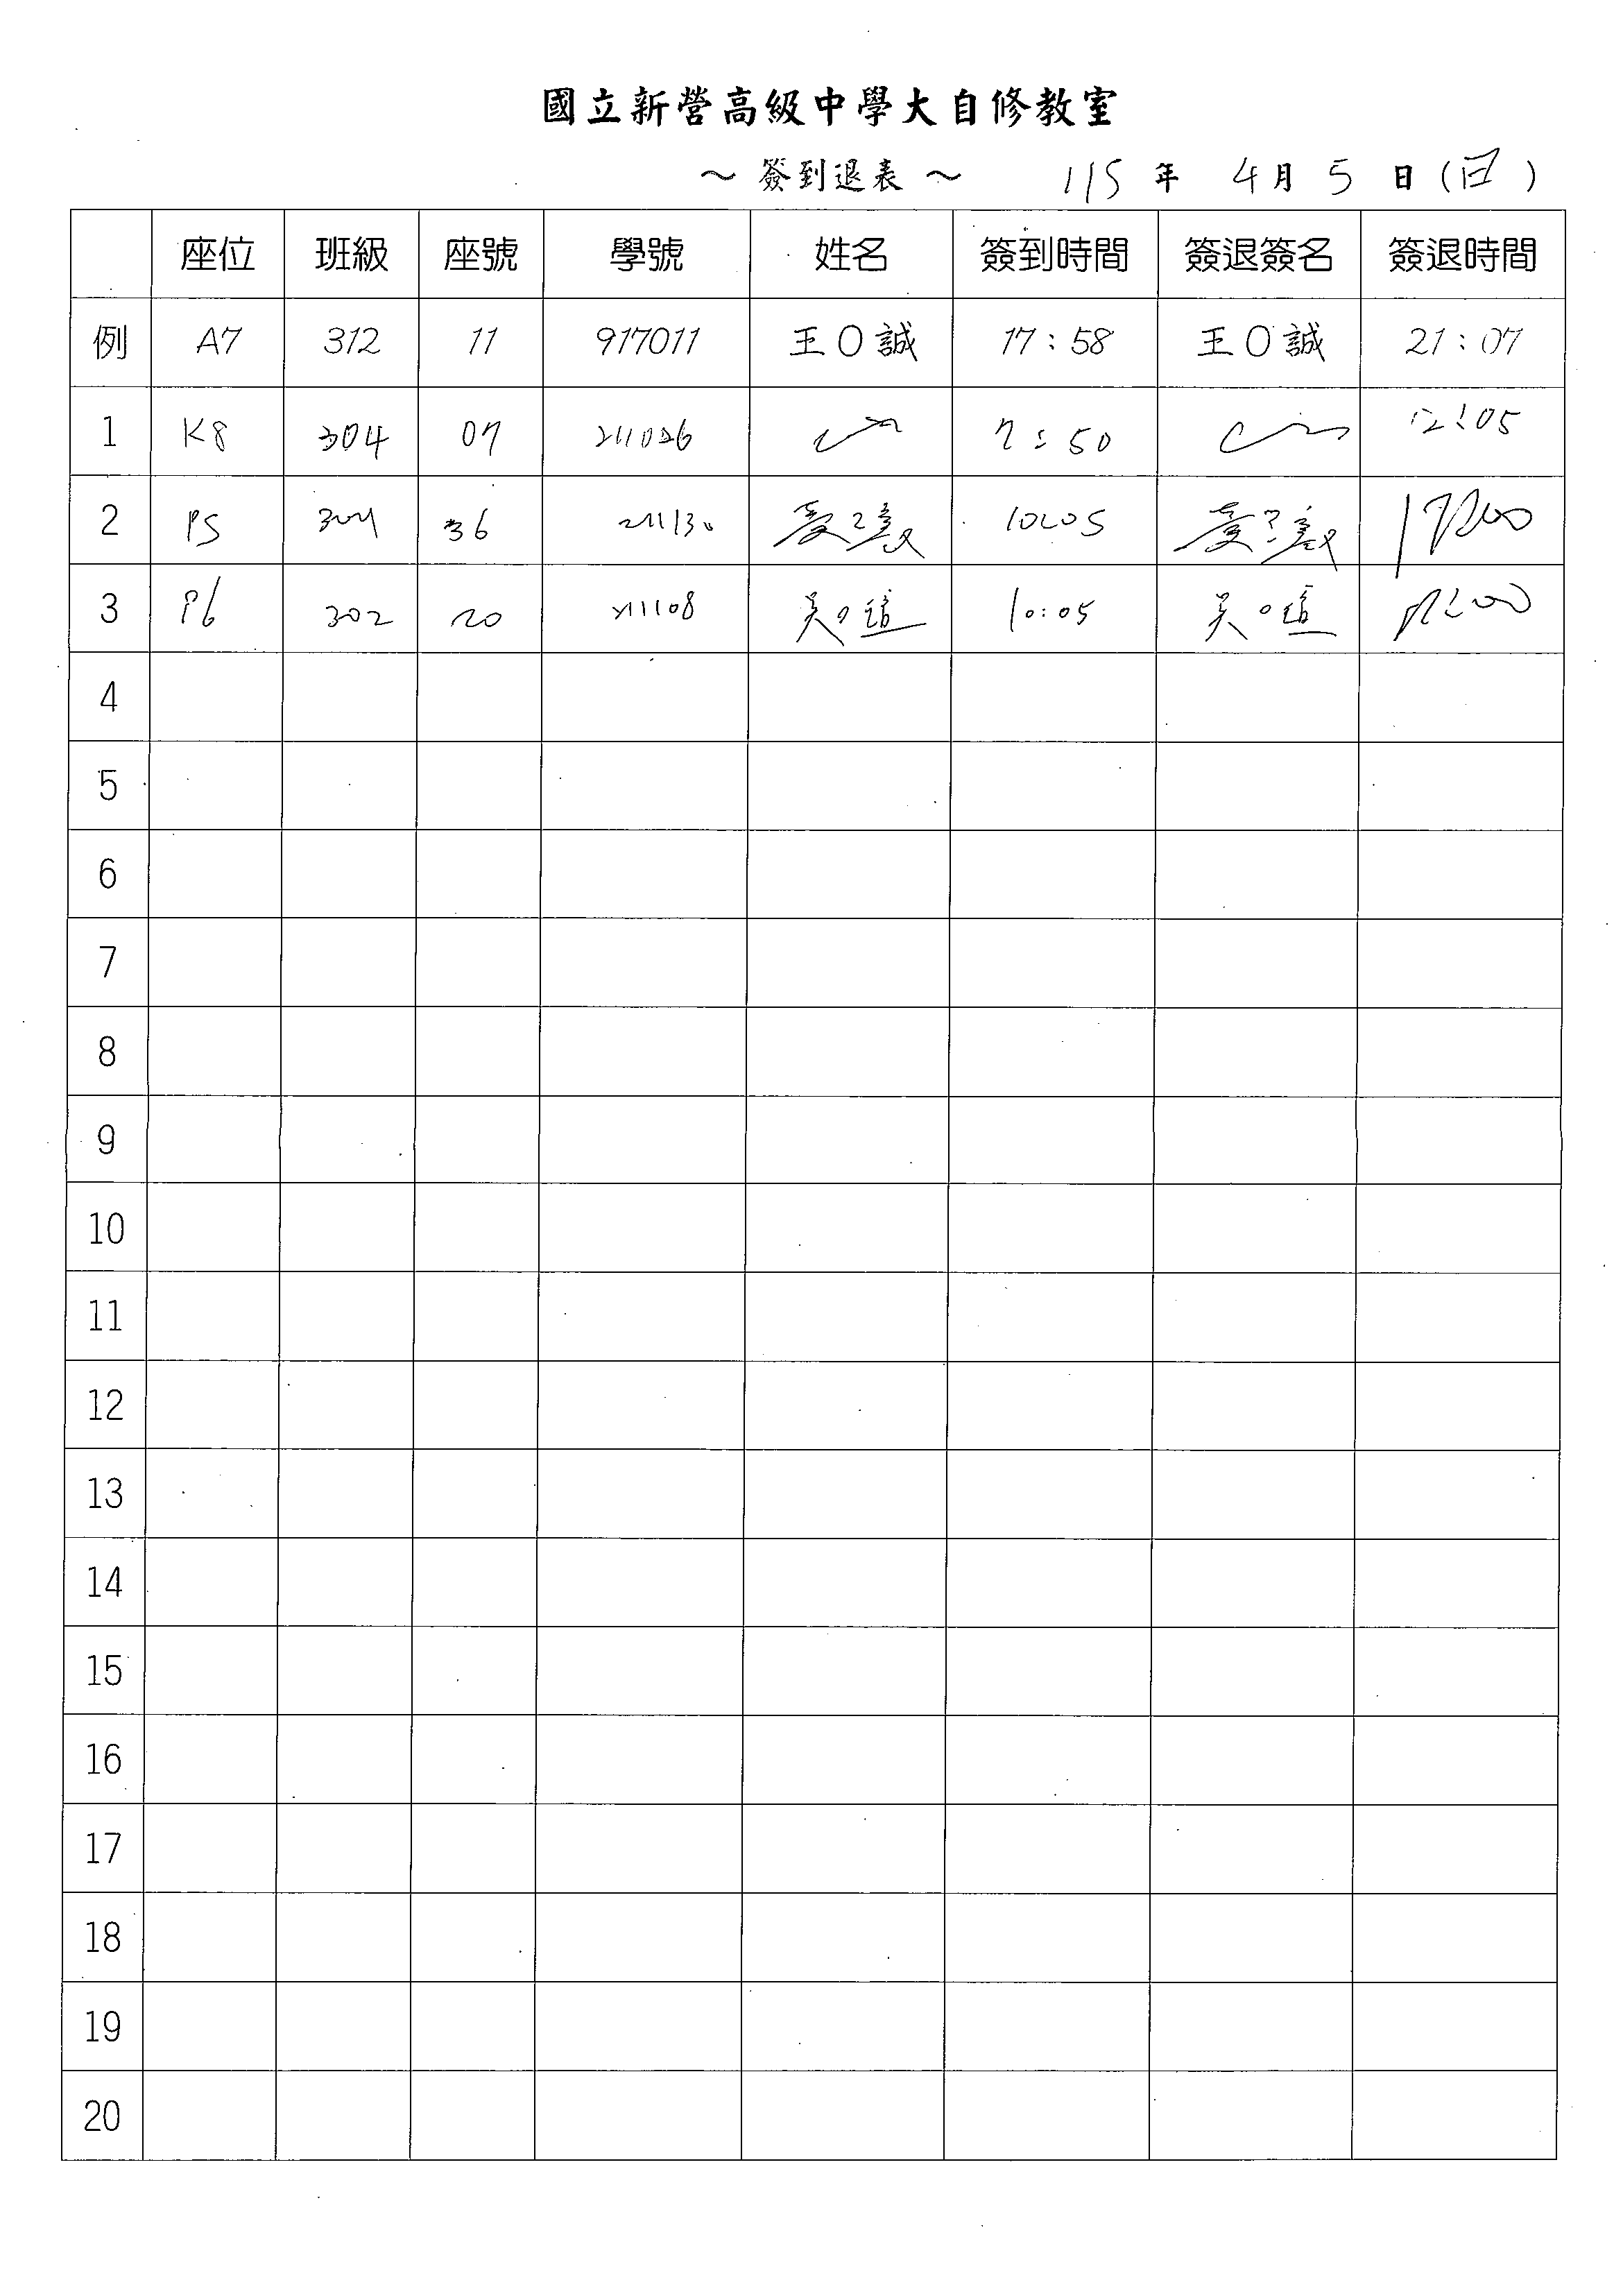 國立新營高級中學大自修教室
～簽到退表～ 115 年 4 月 5 日(日)
座位 班級 座號 學號 姓名 簽到時間 簽退簽名 簽退時間
例 A7 312 11 917011 王O誠 17:58 王O誠 21:07
1 K8 304 07 211026 7:50 12:05
2 P5 304 36 211130 10:05 17:00
3 P6 302 20 211108 吳O誼 10:05 吳O誼 17:00
4
5
6
7
8
9
10
11
12
13
14
15
16
17
18
19
20